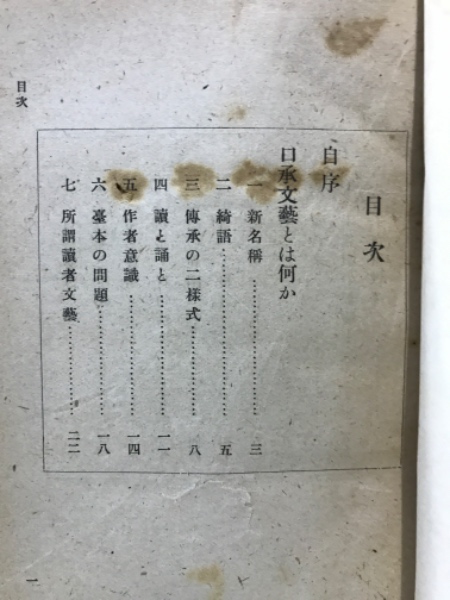 目次
自序
口承文藝とは何か
一 新名稱…………………………三
二 綺語…………………………五
三 傳承の二樣式…………………………八
四 讀と誦と…………………………一一
五 作者意識…………………………一四
六 臺本の問題…………………………一八
七 所謂讀者文藝…………………………二二
目次
一